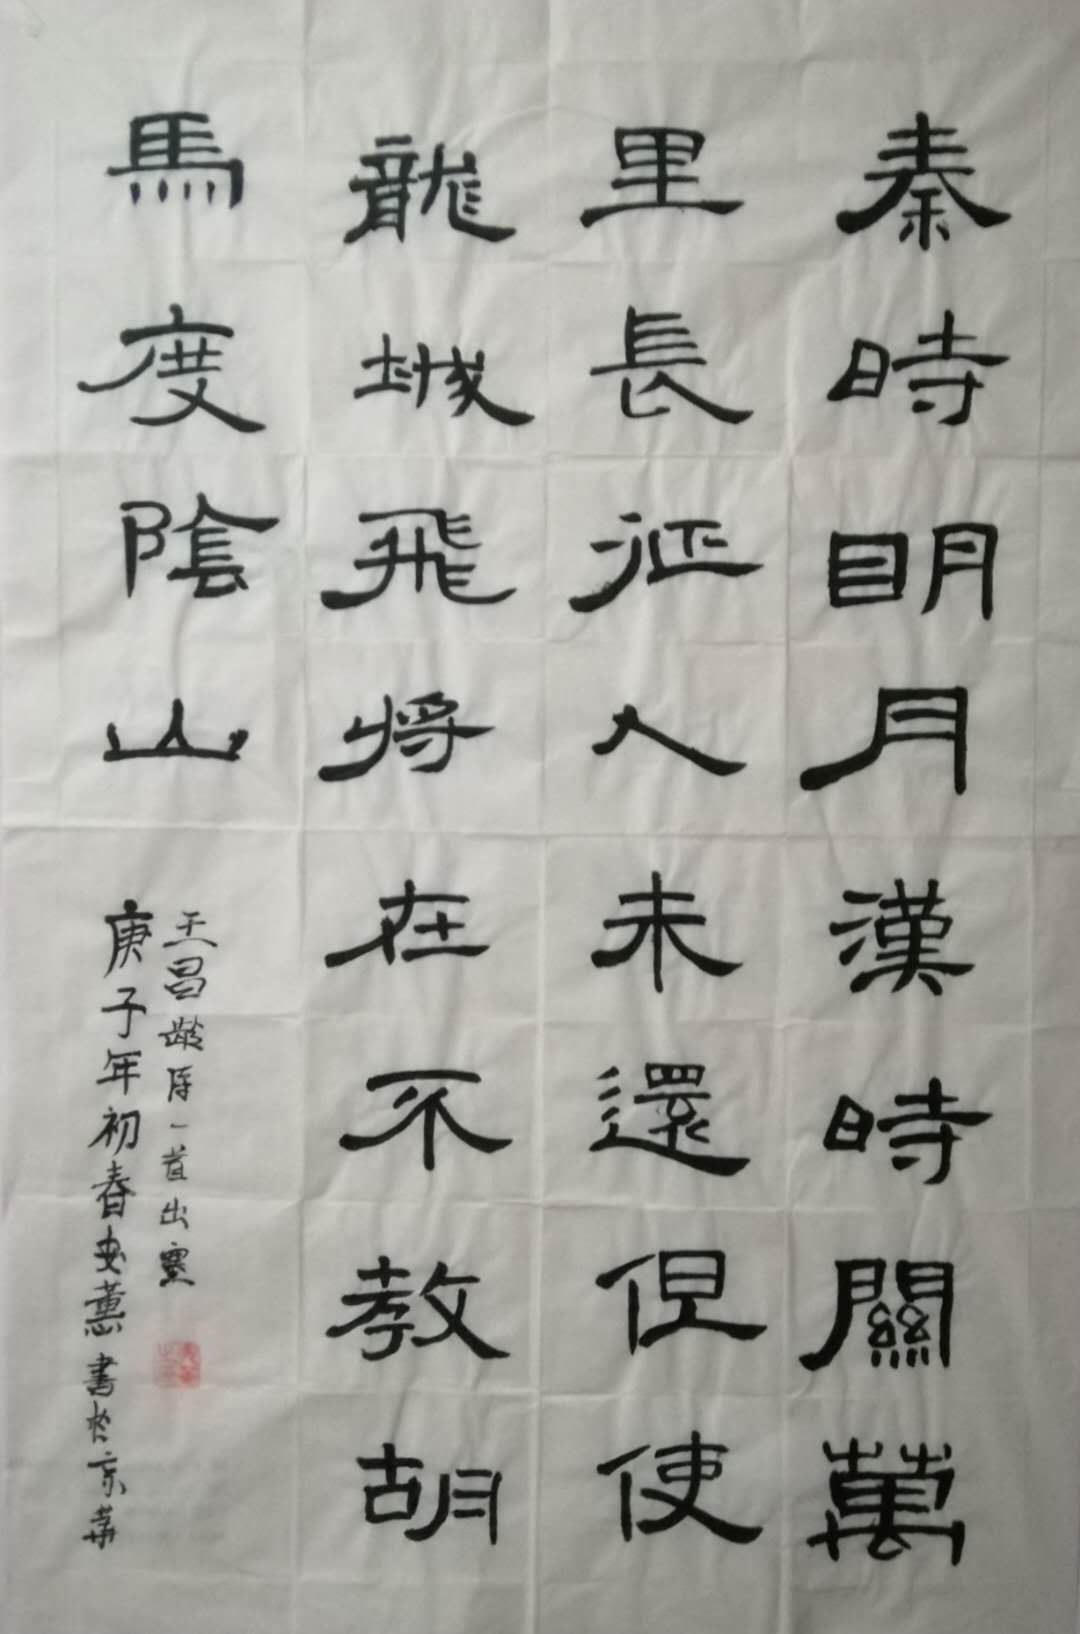 秦時明月漢時關萬
里長征人未還但使
龍城飛將在不教胡
馬度陰山
王昌齡詩一首出塞
庚子年初春安蕙書於京華